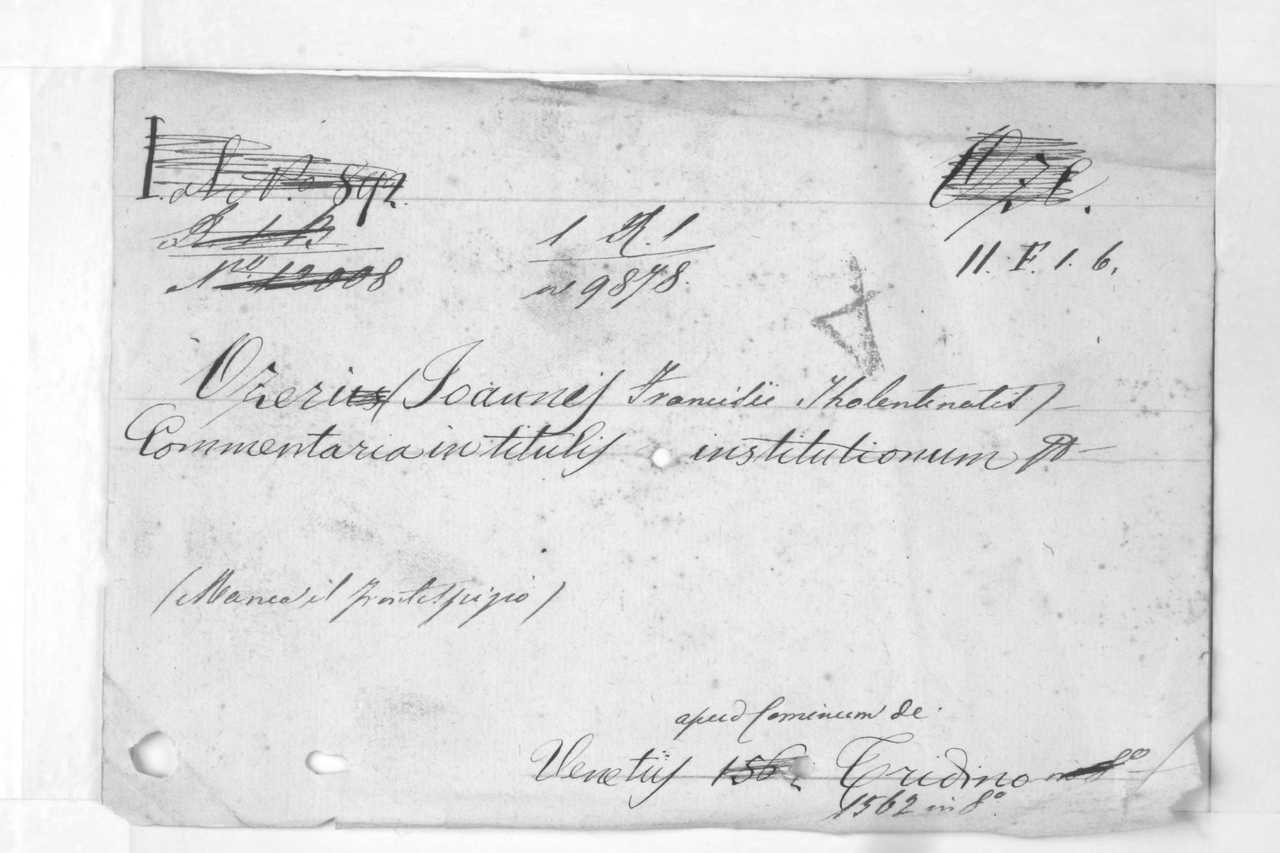 892.
1 R. 1
nº 9878.
II. F. 1. 6.
Ozeri (Joannes Francisii Tholentinatis)
Commentaria in titulis institutionum
(Manca il frontespizio)
apud Cominum de
Venetiis 1562 Tridino in 8º
1562 in 8º